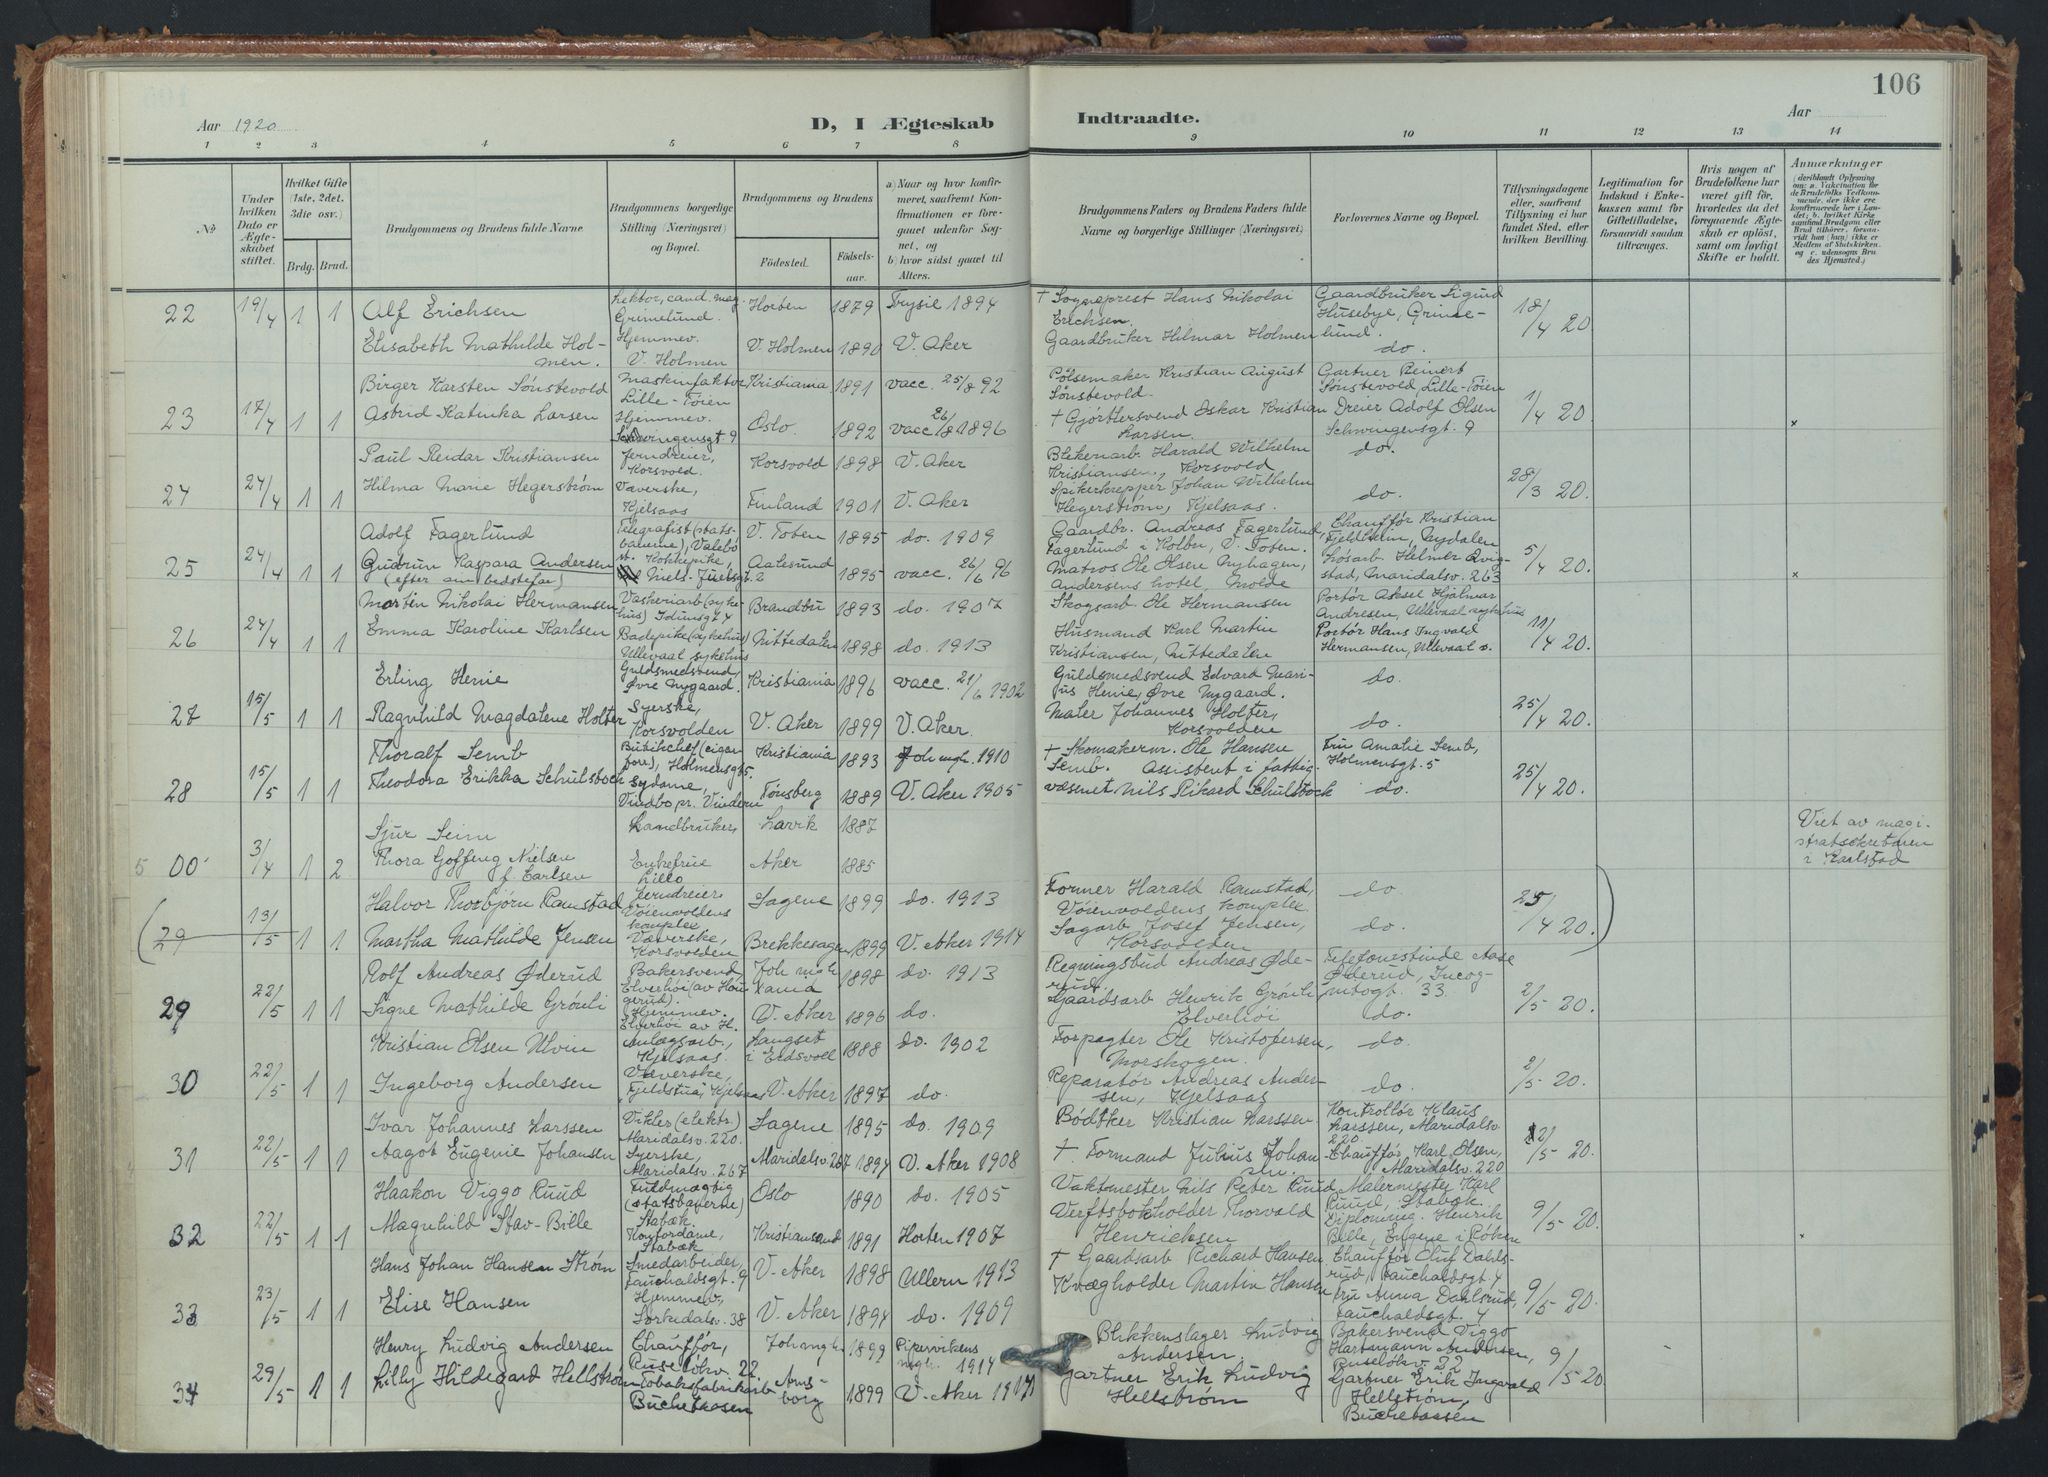 106
Aar 1920
D, I Ægteskab
Indtraadte.
Aar
1 2 3 4 5 6 7 8 9 10 11 12 13 14
No
Under hvilken Dato er Ægteskabet stiftet.
Hvilket Gifte (1ste, 2det, 3die osv.)
Brdg. Brud.
Brudgommens og Brudens fulde Navne
Brudgommens borgerlige Stilling (Næringsvei) og Bopæl.
Brudgommens og Brudens
Fødested.
Fødselsaar.
a) Naar og hvor konfirmeret, saafremt Konfirmationen er foregaaet udenfor Sognet, og
b) hvor sidst gaaet til Alters.
Brudgommens Faders og Brudens Faders fulde Navne og borgerlige Stillinger (Næringsvei).
Forlovernes Navne og Bopæl.
Tillysningsdagene eller, saafremt Tillysning ei har fundet Sted, efter hvilken Bevilling.
Legitimation for Indskud i Enkekassen samt for Giftetilladelse, forsaavidt saadan tiltrænges.
Hvis nogen af Brudefolkene har været gift før, hvorledes da det foregaaende Ægteskab er opløst, samt om lovligt Skifte er holdt.
Anmærkninger
(deriblandt Oplysning om: a. Vakcination for de Brudefolks Vedkommende, der ikke ere konfirmerede her i Landet; b. hvilket Kirkesamfund Brudgom eller Brud tilhører, forsaavidt han (hun) ikke er Medlem af Statskirken. og c. udensogns Brudes Hjemsted.)
22 19/4 1 1 Alf Erichsen Lektor, cand. mag. Grimelund. Horten 1879 Trysil 1894 † Sogneprest Hans Nikolai Erichsen. Gaardbruker Sigurd Husebye, Grimelund. 18/4 20
Elisabeth Mathilde Holmen. Hjemmev. V. Holmen V. Holmen 1890 V. Aker Gaardbruker Hilmar Holmen do.
Birger Karsten Sønstevold Maskinfaktor Lille-Tøien Kristiania 1891 vacc. 25/8 92 Pølsemaker Kristian August Sønstevold. Gartner Reinert Sønstevold, Lille-Tøien
23 17/4 1 1 Astrid Katinka Larsen Hjemmev. Schwingensgt 9 Oslo. 1892 vacc 26/8 1896 † Gjørtlersvend Oskar Kristian Larsen. Dreier Adolf Olsen Schwingensgt. 9 1/4 20 x
Paul Reidar Kristiansen Jerndreier, Korsvold. Korsvold 1898 V. Aker Blekeriarb Harald Wilhelm Kristiansen, Korsvold do.
24 24/4 1 1 Hilma Marie Hegerstrøm Væverske, Kjelsaas Finland 1901 V. Aker Spikerkrepper Johan Wilhelm Hegerstrøm, Kjelsaas. do. 28/3 20.
Adolf Fagerlund Telegrafist (statsbanerne), Valebø V. Toten 1895 do. 1909 Gaardbr. Andreas Fagerlund, Fagerlund i Kolbu, V. Toten. Chauffør Kristian Fjeldheim, Nydalen
25 24/4 1 1 Gudrun Kaspara Andersen (efter sin bedstefar) Kokkepike, Niels Juelsgt. 2 Aalesund 1895 vacc. 26/6 96 Matros Ole Olsen Nyhagen, Andersens hotel, Molde Løsarb. Helmer Qvigstad, Maridalsv. 263 5/4 20. x
Morten Nikolai Hermansen Vaskeriarb (sykehus) Idunsgt 4 Brandbu 1893 do. 1907 Skogsarb. Ole Hermansen Portør Aksel Hjalmar Andresen, Ullevaal sykehus
26 24/4 1 1 Emma Karoline Karlsen Badepike (sykehus) Ullevaal sykehus Nittedalen 1898 do. 1913 Husmand Karl Martin Kristiansen, Nittedalen Portør Hans Ingvald Hermansen, Ullevaal s. 11/4 20.
Erling Henie Guldsmedsvend, Øvre Nygaard. Kristiania 1896 vacc. 21/6 1902 Guldsmedsvend Edvard Marius Henie, Øvre Nygaard. do.
27 15/5 1 1 Ragnhild Magdalene Holter Syerske, Korsvolden V. Aker 1899 V. Aker. Maler Johannes Holter, Korsvolden do. 25/4 20.
Thoralf Semb Butikchef (cigarforr), Holmensgt 5. Kristiania 1893 Joh mgh. 1910 † Skomakerm. Ole Hansen Semb. Fru Amalie Semb, Holmensgt. 5
28 15/5 1 1 Theodora Erikka Schulstock Sydame, Vindbo pr. Vindern Tønsberg 1889 V. Aker 1905 Assistent i fattigvæsenet Nils Rikard Schulstock do. 25/4 20.
Sjur Seim Landbruker, Larvik 1887
5 00 3/4 1 2 Thora Goffeng Nielsen f. Carlsen Enkefrue Lillo Aker 1885 Viet av magistratsekretæren i Karlstad
Halvor Thorbjørn Ramstad Jerndreier Vøienvoldens komplex Sagene 1899 do. 1913 Former Harald Ramstad, Vøienvoldens komplex. do
(29 13/5 1 1 Martha Mathilde Jensen Væverske, Korsvolden Brekkesagen 1899 V. Aker 1914 Sagarb Josef Jensen, Korsvolden do. 25/4 20.)
Rolf Andreas Øderud Bakersvend, Elverhøi (av Haugerud). Joh mgh Kania 1898 do. 1913 Regningsbud Andreas Øderud. Telefonistinde Aase Øderud, Incognitogt. 33
29 22/5 1 1 Signe Mathilde Grønli Hjemmev. Elverhøi av H. V. Aker 1896 do. Gaardsarb Henrik Grønli Elverhøi do. 2/5 20.
Kristian Olsen Ulvin Anlægsarb., Kjelsaas. Langset i Eidsvoll 1888 do. 1902 Forpagter Ole Kristofersen, Morskogen. do.
30 22/5 1 1 Ingeborg Andersen Væverske, "Fjeldstua", Kjelsaas V. Aker 1897 do. Reparatør Andreas Andersen, Kjelsaas do. 2/5 20.
Ivar Johannes Larssen Vikler (elektr.) Maridalsv. 220. Sagene 1895 do. 1909 Bødtker Kristian Larssen Kontrollør Klaus Larssen, Maridalsv. 220
31 22/5 1 1 Aagot Eugenie Johansen Syerske, Maridalsv. 267 Maridalsv. 267 1894 V. Aker 1908 † Formand Julius Johansen. Chauffør Karl Olsen, Maridalsv. 220 2/5 20.
Haakon Viggo Ruud Fuldmægtig (statsbanerne) Stabæk Oslo 1890 do. 1905 Vaktmester Nils Peter Ruud Malermester Karl Ruud, Stabæk
32 22/5 1 1 Magnhild Stav-Bille Kontordame, Stabæk Kristiansand 1891 Horten 1907 Verftsbokholder Thorvald Henricksen Diploming. Henrik Bille, Eugene i Røken 9/5 20. x
Hans Johan Hansen Strøm Smedarbeider, Fauchaldsgt. 9 V. Aker 1898 Ullern 1913 † Gaardsarb Richard Hansen Chauffør Oluf Dahlsrud, Fauchaldsgt. 4
33 23/5 1 1 Elise Hansen Hjemmev, Sørkedalsv. 38 V. Aker 1894 do. 1909 Kvægholder Martin Hansen Fru Anna Dahlsrud, Fauchaldsgt. 4 9/5 20.
Henry Ludvig Andersen Chauffør, Ruseløkv. 22 Joh mgh 1899 Pipervikens mgh. 1914 Blikkenslager Ludvig Andersen. Bakersvend Viggo Hartmann Andersen, Ruseløkv. 22
34 29/5 1 1 Lilly Hildegard Hellstrøm Tobaksfabrikarb Büchehaasen Amsborg 1899 V. Aker 1917 Gartner Erik Ludvig Hellstrøm Gartner Erik Ingvald Hellstrøm, Büchehaasen 9/5 20